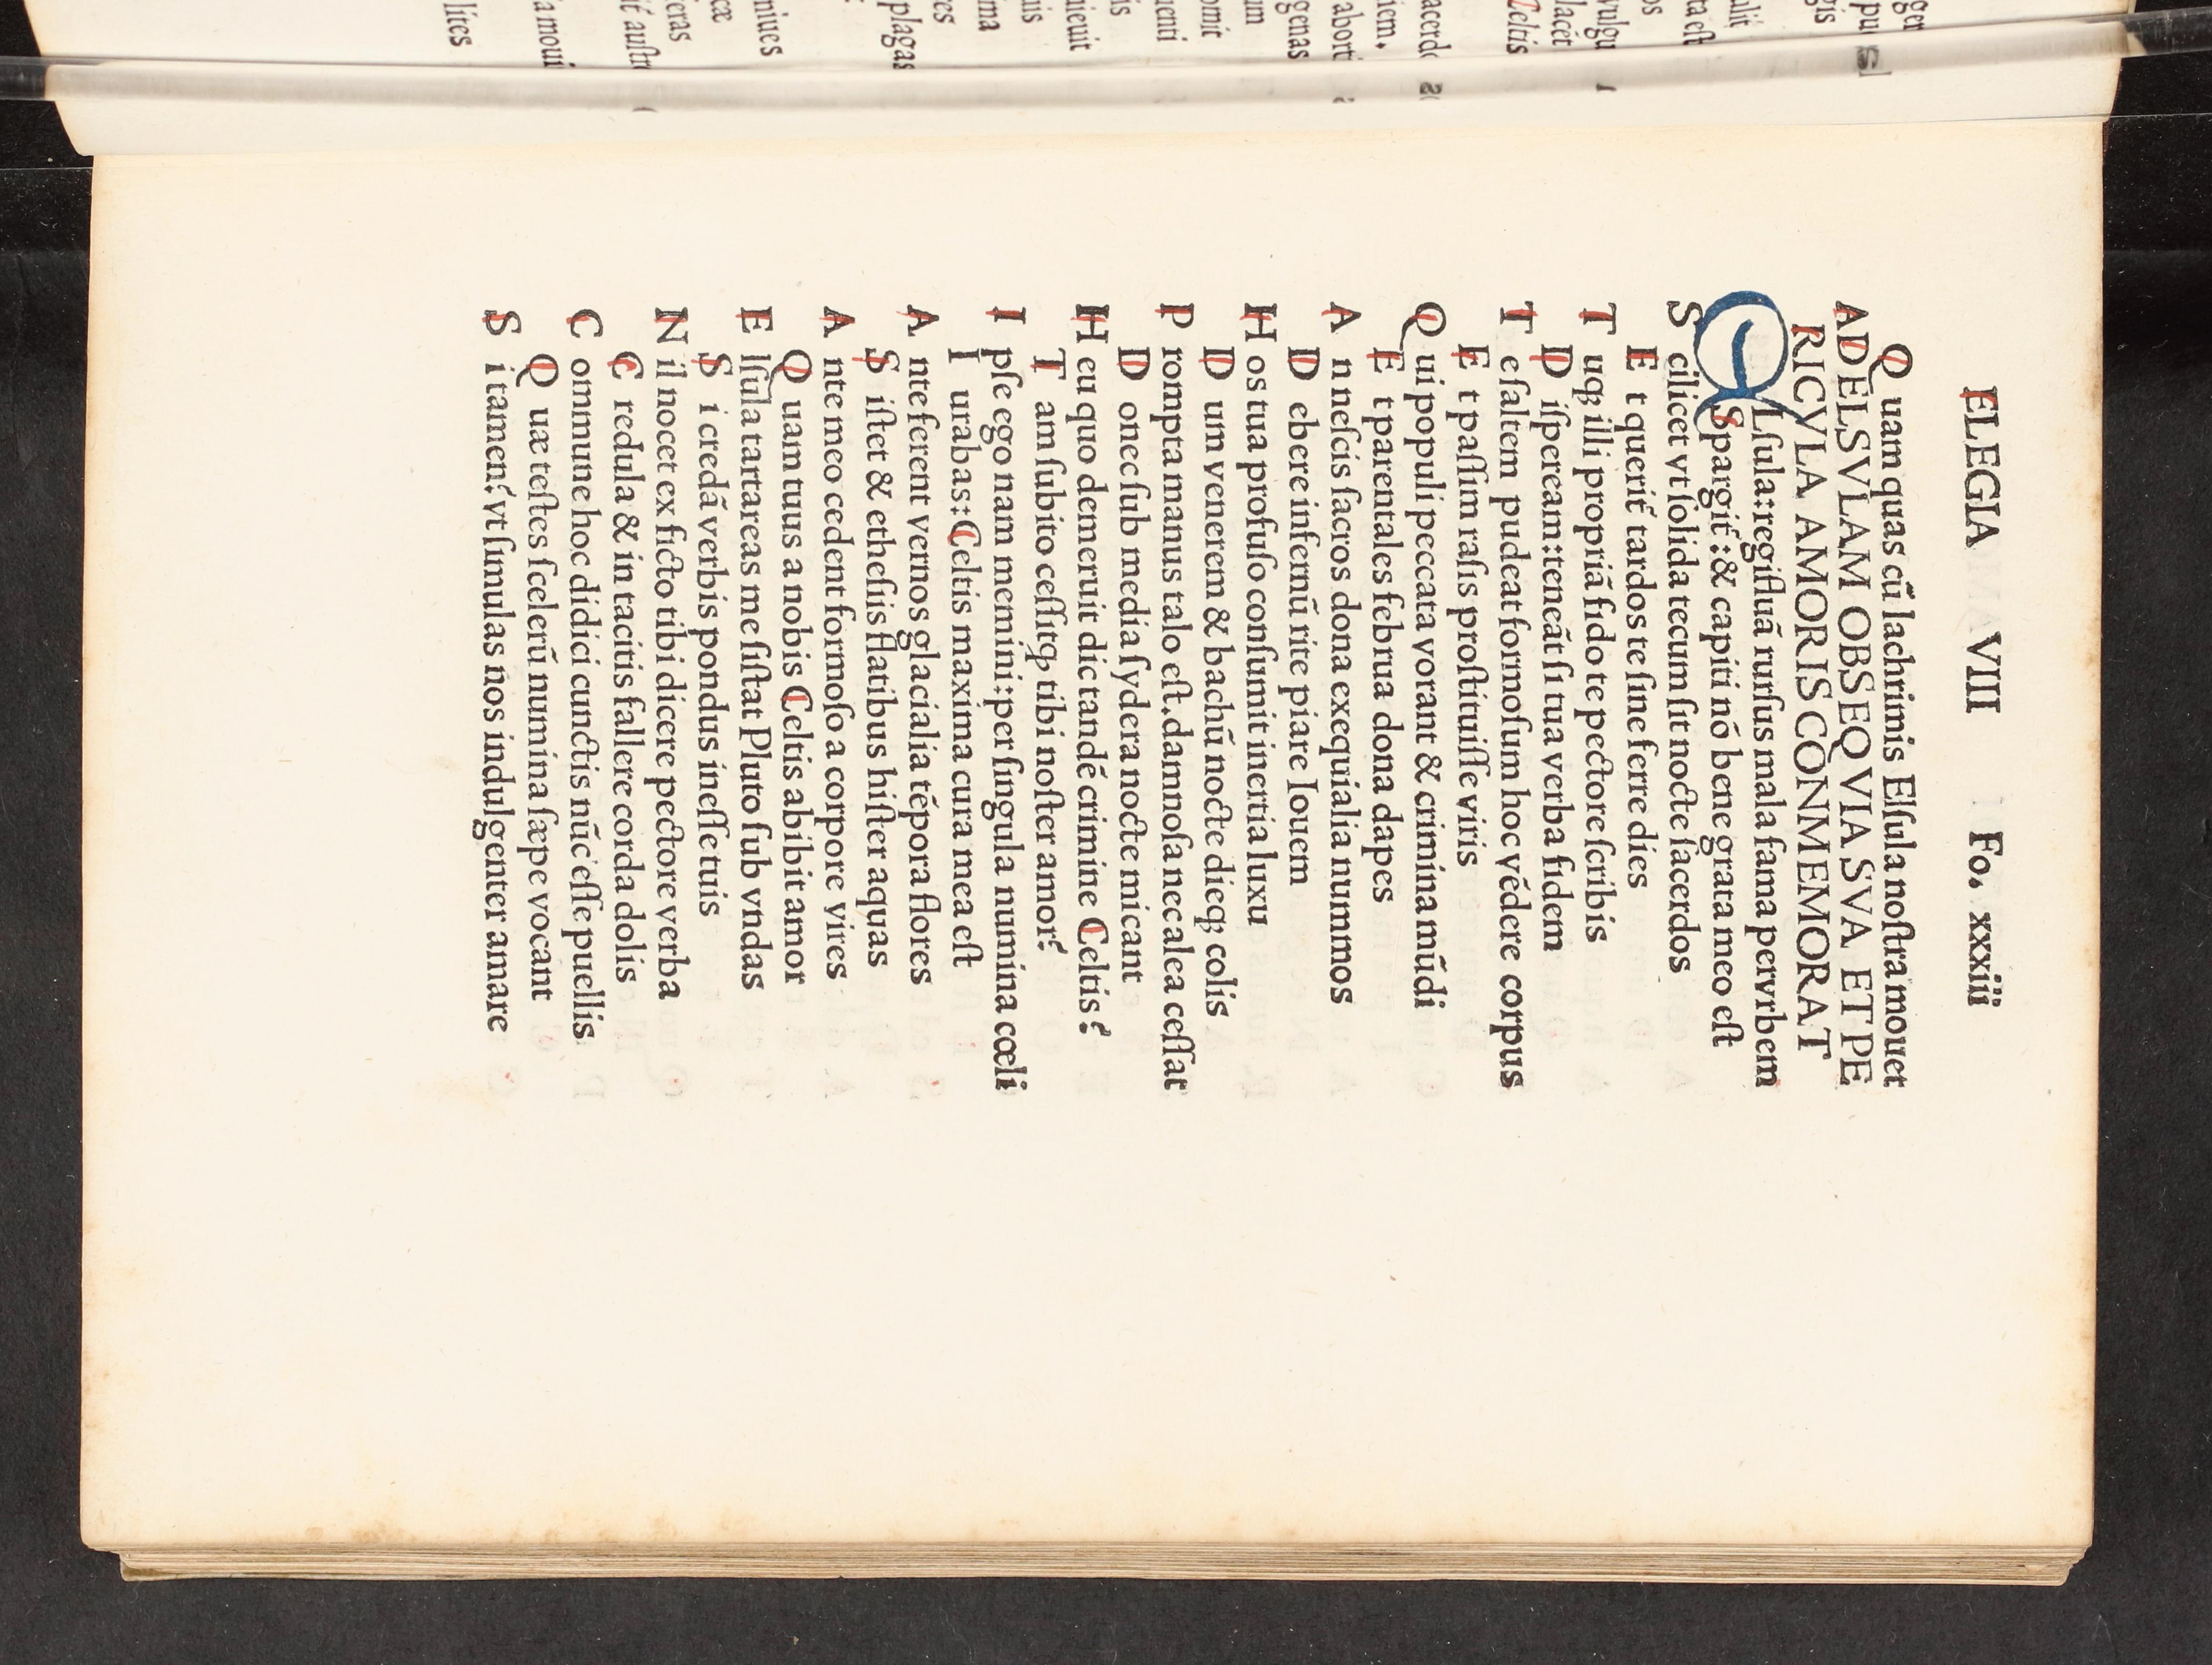 ELEGIA VIII Fo. xxxiii
Q uam quas cū lachrimis Elſula noſtra mouet
AD ELSVLAM OBSEQVIA SVA ET PE
RICVLA AMORIS CONMEMORAT
Lſula: regifluā rurſus mala fama pervrbem
Spargit́: & capiti nō bene grata meo eſt
S cilicet vt ſolida tecum ſit nocte ſacerdos
E t querit́ tardos te ſine ferre dies
T uqꝫ illi propriā fido te pectore ſcribis
D iſpeream: teneāt ſi tua verba fidem
T e ſaltem pudeat formoſum hoc vēdere corpus
E t paſſim raſis proſtituiſſe viris
Q ui populi peccata vorant & crimina mūdi
E t parentales februa dona dapes
A n neſcis ſacros dona exequialia nummos
D ebere infernū rite piare Iouem
H os tua profuſo conſumit inertia luxu
D um venerem & bachū nocte dieqꝫ colis
P rompta manus talo eſt. damnoſa nec alea ceſſat
D onec ſub media ſydera nocte micant
H eu quo demeruit dic tandē crimine Celtis?
T am ſubito ceſſitqꝫ tibi noſter amor?
I pſe ego nam memini: per ſingula numina cœli
I urabas: Celtis maxima cura mea eſt
A nte ferent vernos glacialia tēpora flores
S iſtet & etheſiis flatibus hiſter aquas
A nte meo cedent formoſo a corpore vires
Q uam tuus a nobis Celtis abibit amor
E lſula tartareas me ſiſtat Pluto ſub vndas
S i credā verbis pondus ineſſe tuis
N il nocet ex ficto tibi dicere pectore verba
C redula & in tacitis fallere corda dolis
C ommune hoc didici cunctis nūc eſſe puellis
Q uæ teſtes ſcelerū numina ſæpe vocant
S i tamen? vt ſimulas nos indulgenter amare